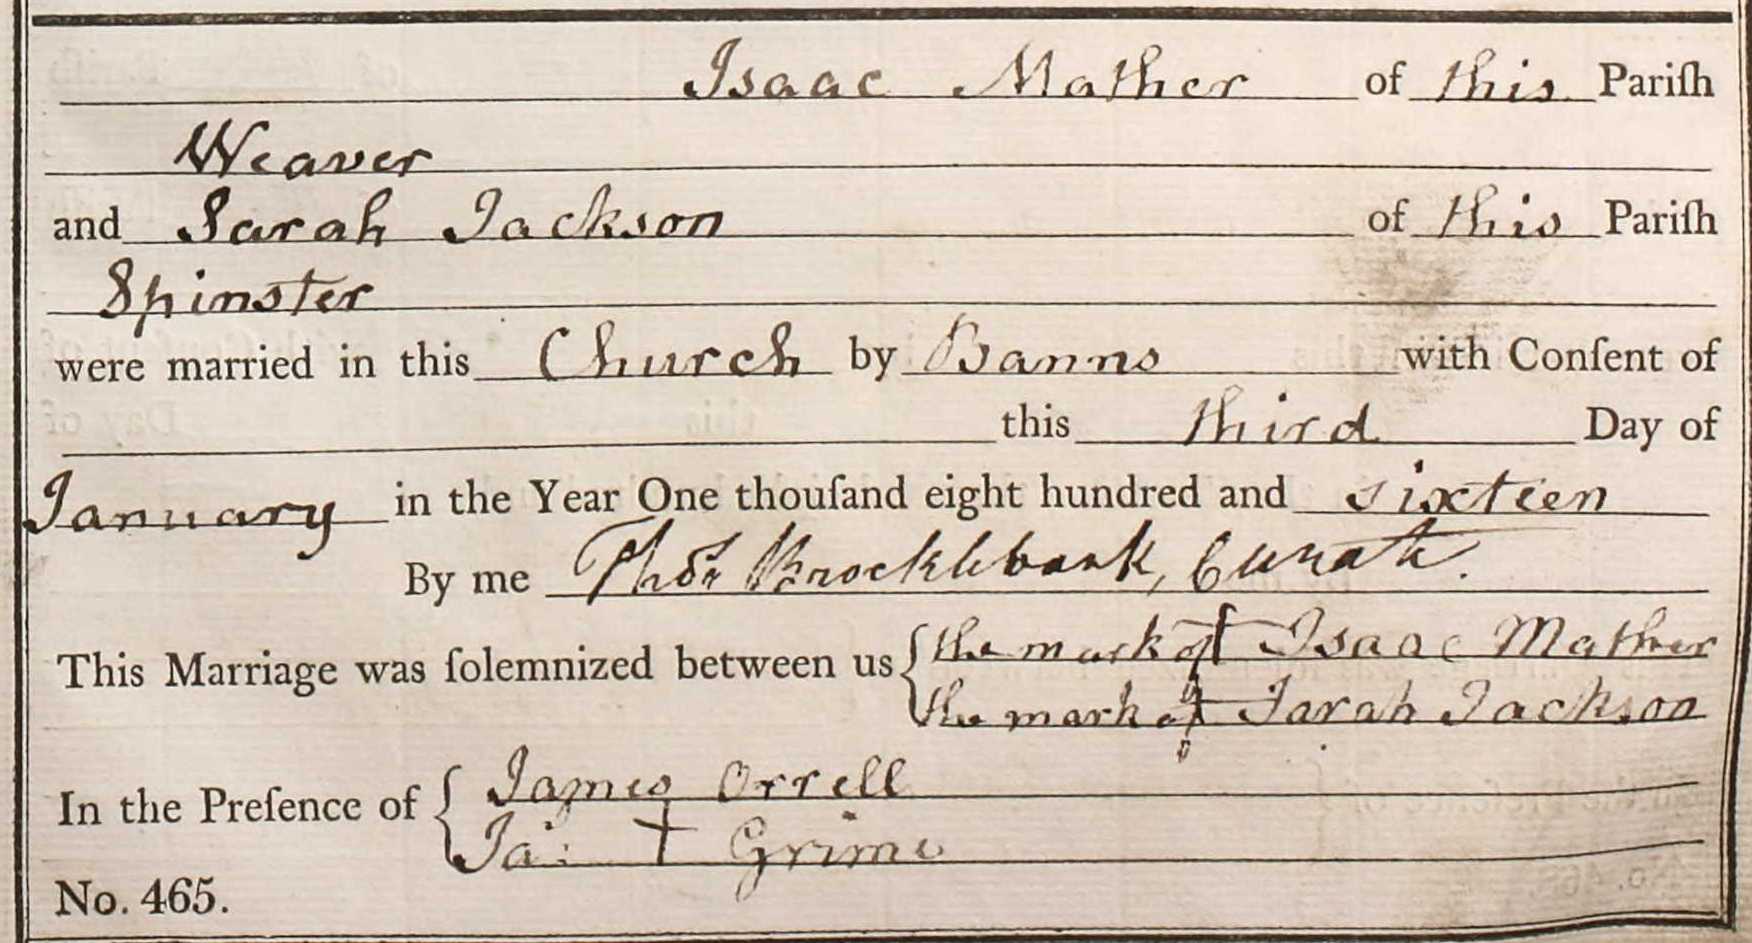 Isaac Mather of this Pariſh
Weaver
and Sarah Jackson of this Pariſh
Spinster
were married in this Church by Banns with Conſent of
this third Day of
January in the Year One thouſand eight hundred and sixteen
By me Thos Brocklebank, Curate.
This Marriage was ſolemnized between us { the mark of + Isaac Mather
the mark of + Sarah Jackson
In the Preſence of { James Orrell
Ja: + Grime
No. 465.